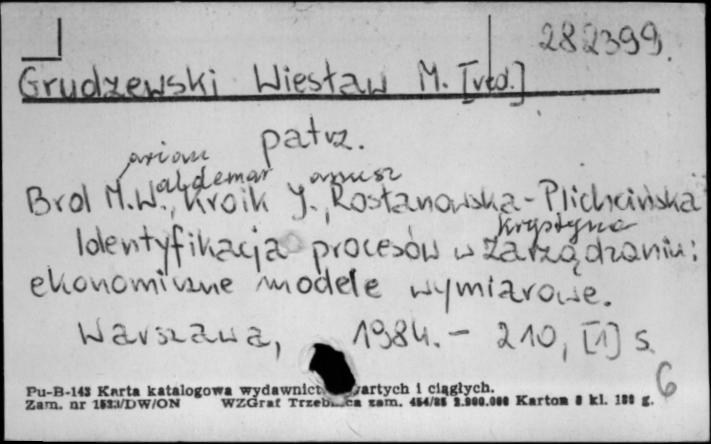 282399.
Grudzewski Wiesław M. [red.]
patrz.
arian aldemar anusz
Brol M.W., Kroik J., Rostanowska-Plichcińska
Krystyna
Identyfikacja procesów w zarządzaniu:
ekonomiczne modele wymiarowe.
Warszawa, 1984. - 210, [1] s.
6
Pu-B-143 Karta katalogowa wydawnict artych i ciągłych.
Zam. nr /DW/ON WZGraf zam. 454/85 2.900.000 Karton 8 kl. 180 g.